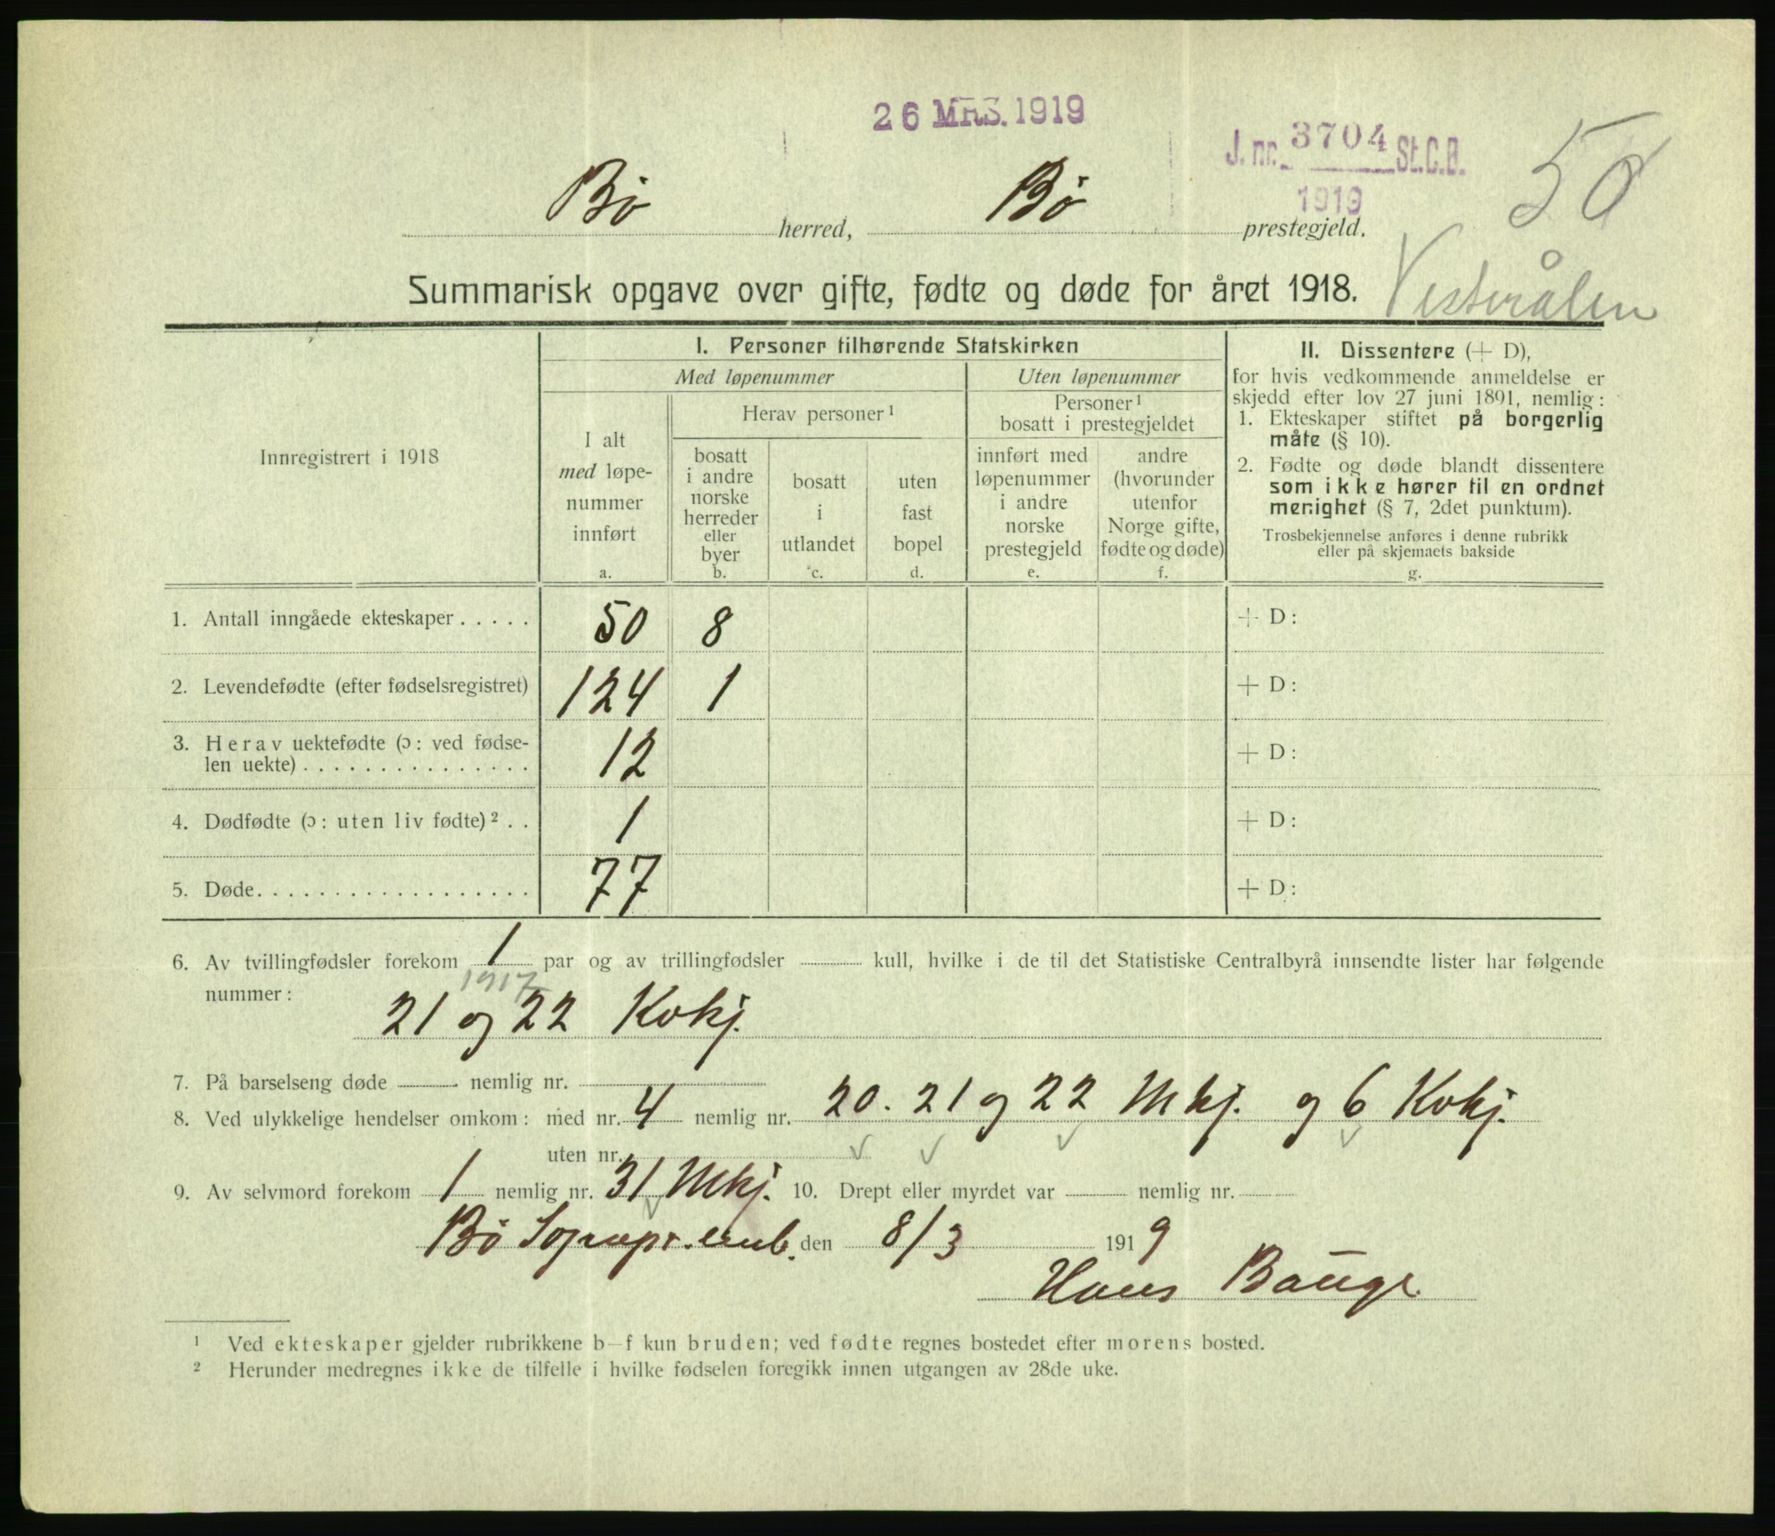 26 MRS. 1919
J. nr. 3704 St.C.B.
1919
50
Bø herred, Bø prestegjeld.
Vesterålen
Summarisk opgave over gifte, fødte og døde for året 1918.
Innregistrert i 1918
I. Personer tilhørende Statskirken
Med løpenummer
Uten løpenummer
I alt
med løpe-
nummer
innført
a.
Herav personer ¹
bosatt
i andre
norske
herreder
eller
byer
b.
bosatt
i
utlandet
c.
uten
fast
bopel
d.
Personer ¹
bosatt i prestegjeldet
innført med
løpenummer
i andre
norske
prestegjeld
e.
andre
(hvorunder
utenfor
Norge gifte,
fødte og døde)
f.
II. Dissentere (+ D),
for hvis vedkommende anmeldelse er
skjedd efter lov 27 juni 1891, nemlig:
1. Ekteskaper stiftet på borgerlig
måte (§ 10).
2. Fødte og døde blandt dissentere
som ikke hører til en ordnet
menighet (§ 7, 2det punktum).
Trosbekjennelse anføres i denne rubrikk
eller på skjemaets bakside
g.
1. Antall inngåede ekteskaper..... 50 8 + D:
2. Levendefødte (efter fødselsregistret) 124 1 + D:
3. Herav uektefødte (ɔ: ved fødse-
len uekte)............... 12 + D:
4. Dødfødte (ɔ: uten liv fødte) ² .. 1 + D:
5. Døde.................. 77 + D:
6. Av tvillingfødsler forekom 1 par og av trillingfødsler kull, hvilke i de til det Statistiske Centralbyrå innsendte lister har følgende
nummer:
1917
21 og 22 Kvkj.
7. På barselseng døde nemlig nr.
8. Ved ulykkelige hendelser omkom: med nr. 4 nemlig nr. 20. 21 og 22 Mkj. og 6 Kvkj.
uten nr.
9. Av selvmord forekom 1 nemlig nr. 31 Mkj. 10. Drept eller myrdet var nemlig nr.
Bø Sognepr.emb. den 8/3 1919
Hans Bauge
¹ Ved ekteskaper gjelder rubrikkene b–f kun bruden; ved fødte regnes bostedet efter morens bosted.
² Herunder medregnes ikke de tilfelle i hvilke fødselen foregikk innen utgangen av 28de uke.